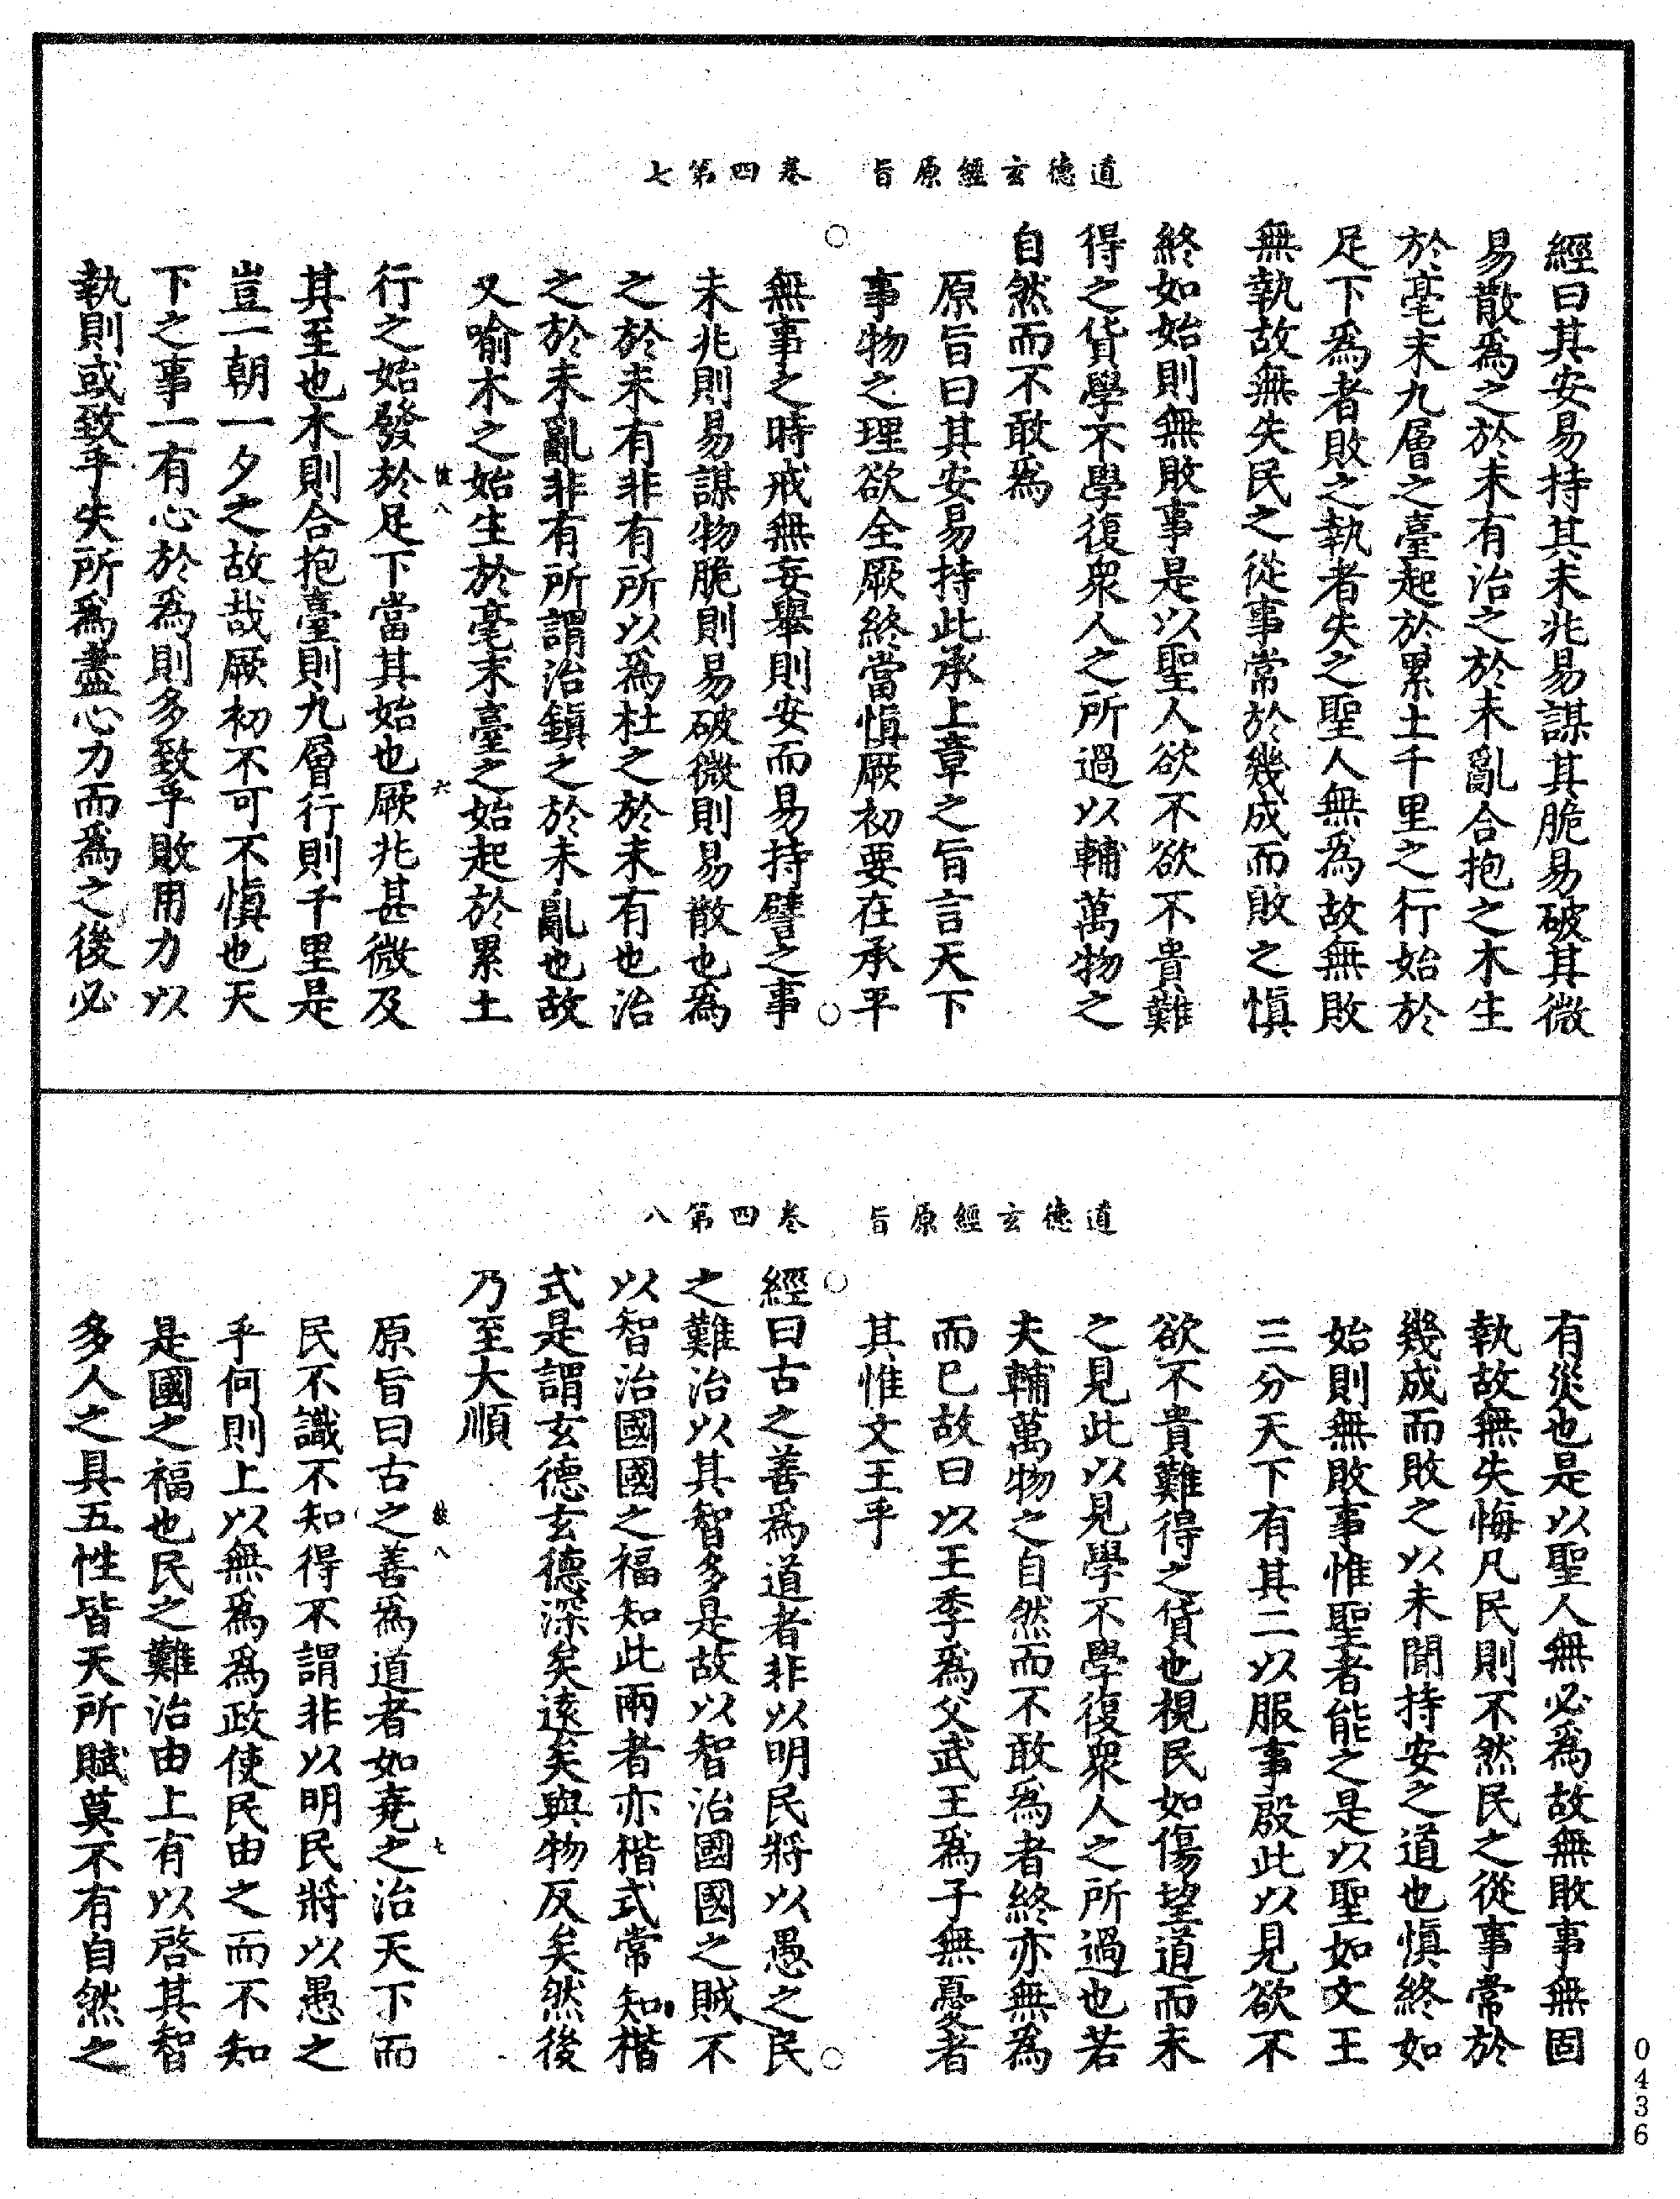 道德玄經原旨　卷四第七
經曰其安易持其未兆易謀其脆易破其微
易散爲之於未有治之於未亂合抱之木生
於毫末九層之臺起於累土千里之行始於
足下爲者敗之執者失之聖人無爲故無敗
無執故無失民之從事常於幾成而敗之慎
終如始則無敗事是以聖人欲不欲不貴難
得之貨學不學復衆人之所過以輔萬物之
自然而不敢爲
原旨曰其安易持此承上章之旨言天下
事物之理欲全厥終當慎厥初要在承平
無事之時戒無妄舉則安而易持譬之事
未兆則易謀物脆則易破微則易散也爲
之於未有非有所以爲杜之於未有也治
之於未亂非有所謂治鎮之於未亂也故
又喻木之始生於毫末臺之始起於累土
八
六
行之始發於足下當其始也厥兆甚微及
其至也木則合抱臺則九層行則千里是
豈一朝一夕之故哉厥初不可不慎也天
下之事一有心於爲則多致乎敗用力以
執則或致乎失所爲盡心力而爲之後必
道德玄經原旨　卷四第八
有災也是以聖人無必爲故無敗事無固
執故無失悔凡民則不然民之從事常於
幾成而敗之以未聞持安之道也慎終如
始則無敗事惟聖者能之是以聖如文王
三分天下有其二以服事殷此以見欲不
欲不貴難得之貨也視民如傷望道而未
之見此以見學不學復衆人之所過也若
夫輔萬物之自然而不敢爲者終亦無爲
而已故曰以王季爲父武王爲子無憂者
其惟文王乎
經曰古之善爲道者非以明民將以愚之民
之難治以其智多是故以智治國國之賊不
以智治國國之福知此兩者亦楷式常知楷
式是謂玄德玄德深矣遠矣與物反矣然後
乃至大順
八
七
原旨曰古之善爲道者如堯之治天下而
民不識不知得不謂非以明民將以愚之
乎何則上以無爲爲政使民由之而不知
是國之福也民之難治由上有以啓其智
多人之具五性皆天所賦莫不有自然之
0436